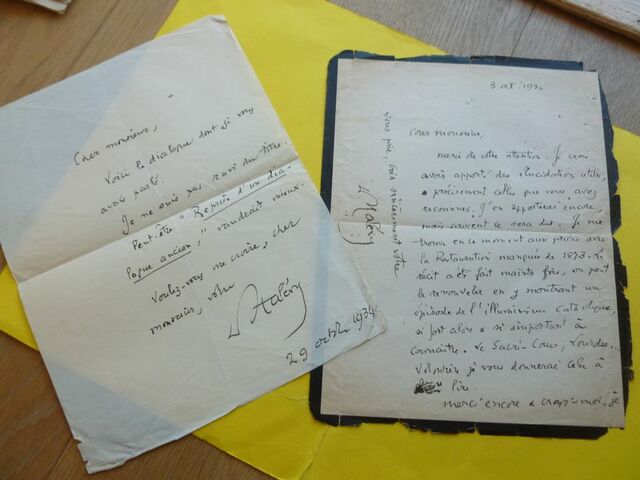 Cher monsieur,
Voici le dialogue dont je vous
avais parlé.
Je ne suis pas ravi du titre.
Peut-être "Reprise d'un dia-
logue ancien," vaudrait mieux.
Voulez-vous me croire, cher
monsieur, votre
D Halévy
29 octobre 1934
3 oct 1934
Cher monsieur,
merci de votre attention. Je crois
avoir apporté des élucidations utiles,
précisément celles que vous avez
reconnues. J'en apporterai encore,
mais souvent ce sera dur. Je me
trouve en ce moment aux prises avec
la Restauration manquée de 1873. Le
récit a été fait maintes fois, on peut
le renouveler en y montrant un
épisode de l'illuminisme catholique,
si fort alors & si important à
connaître. Le Sacré-Coeur, Lourdes.
je vous donnerai cela à
lire.
Merci encore & croyez-moi, je
vous prie, bien sincèrement vôtre
D Halévy